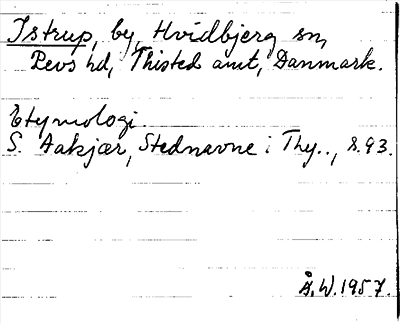 Istrup, by, Hvidbjerg sn,
Revs hd, Thisted amt, Danmark.
Etymologi.
S. Aakjær, Stednavne i Thy.., s.93.
Å.W.1957.